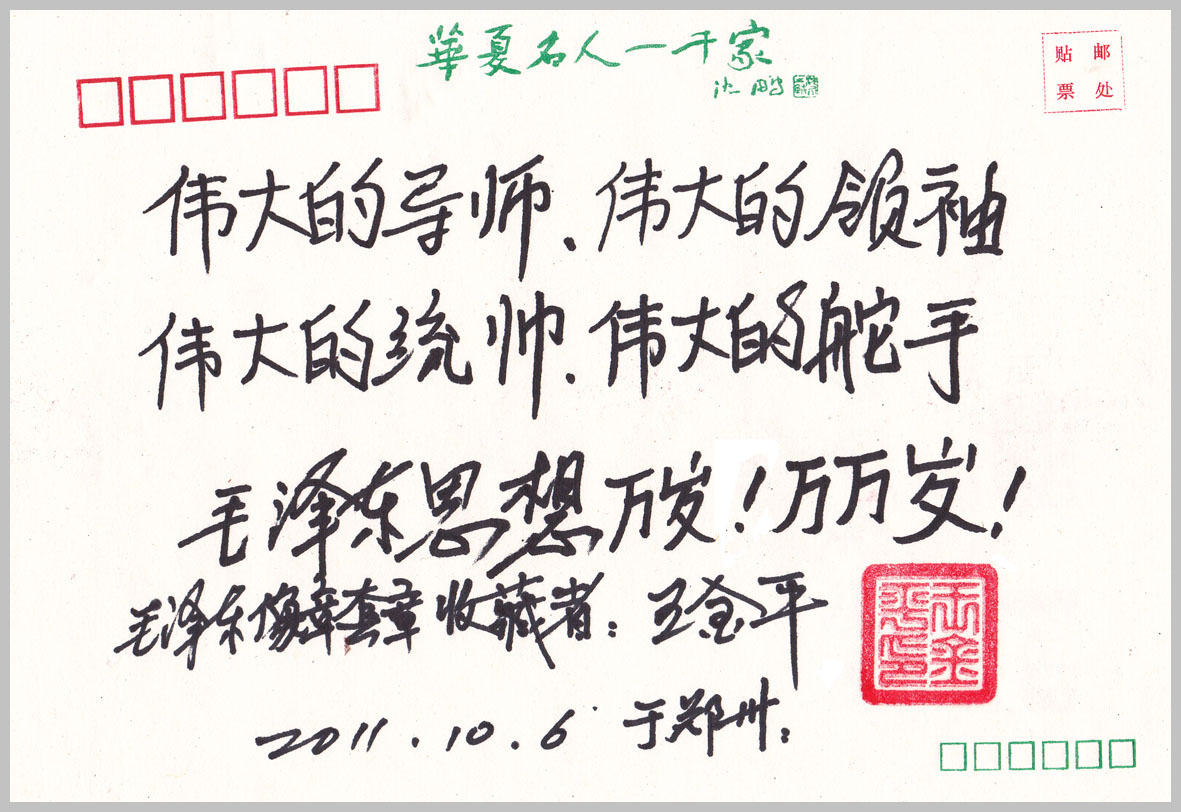 華夏名人一千家
沈鹏
贴 邮
票 处
伟大的导师、伟大的领袖
伟大的统帅、伟大的舵手
毛泽东思想万岁!万万岁!
毛泽东像章套章收藏者:王金平
2011.10.6 于郑州:
王金平印